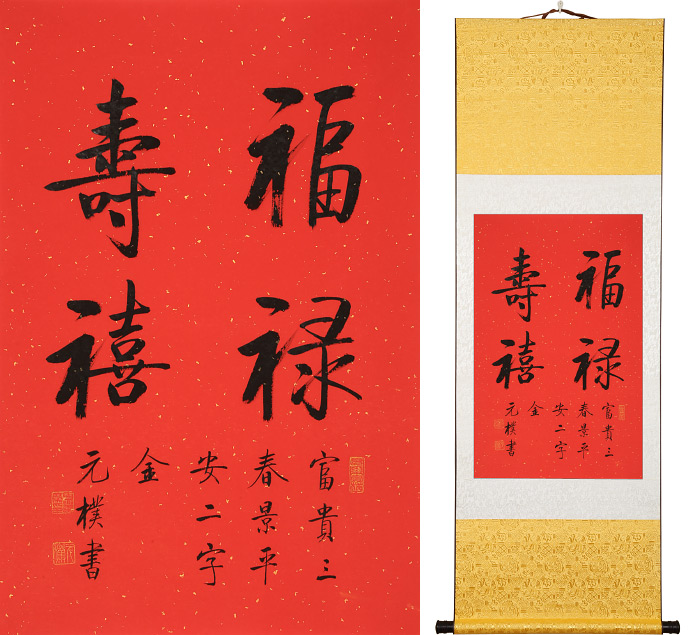 福禄
壽禧
富貴三
春景平
安二字
金
元樸書
福禄
壽禧
富貴三
春景平
安二字
金
元樸書